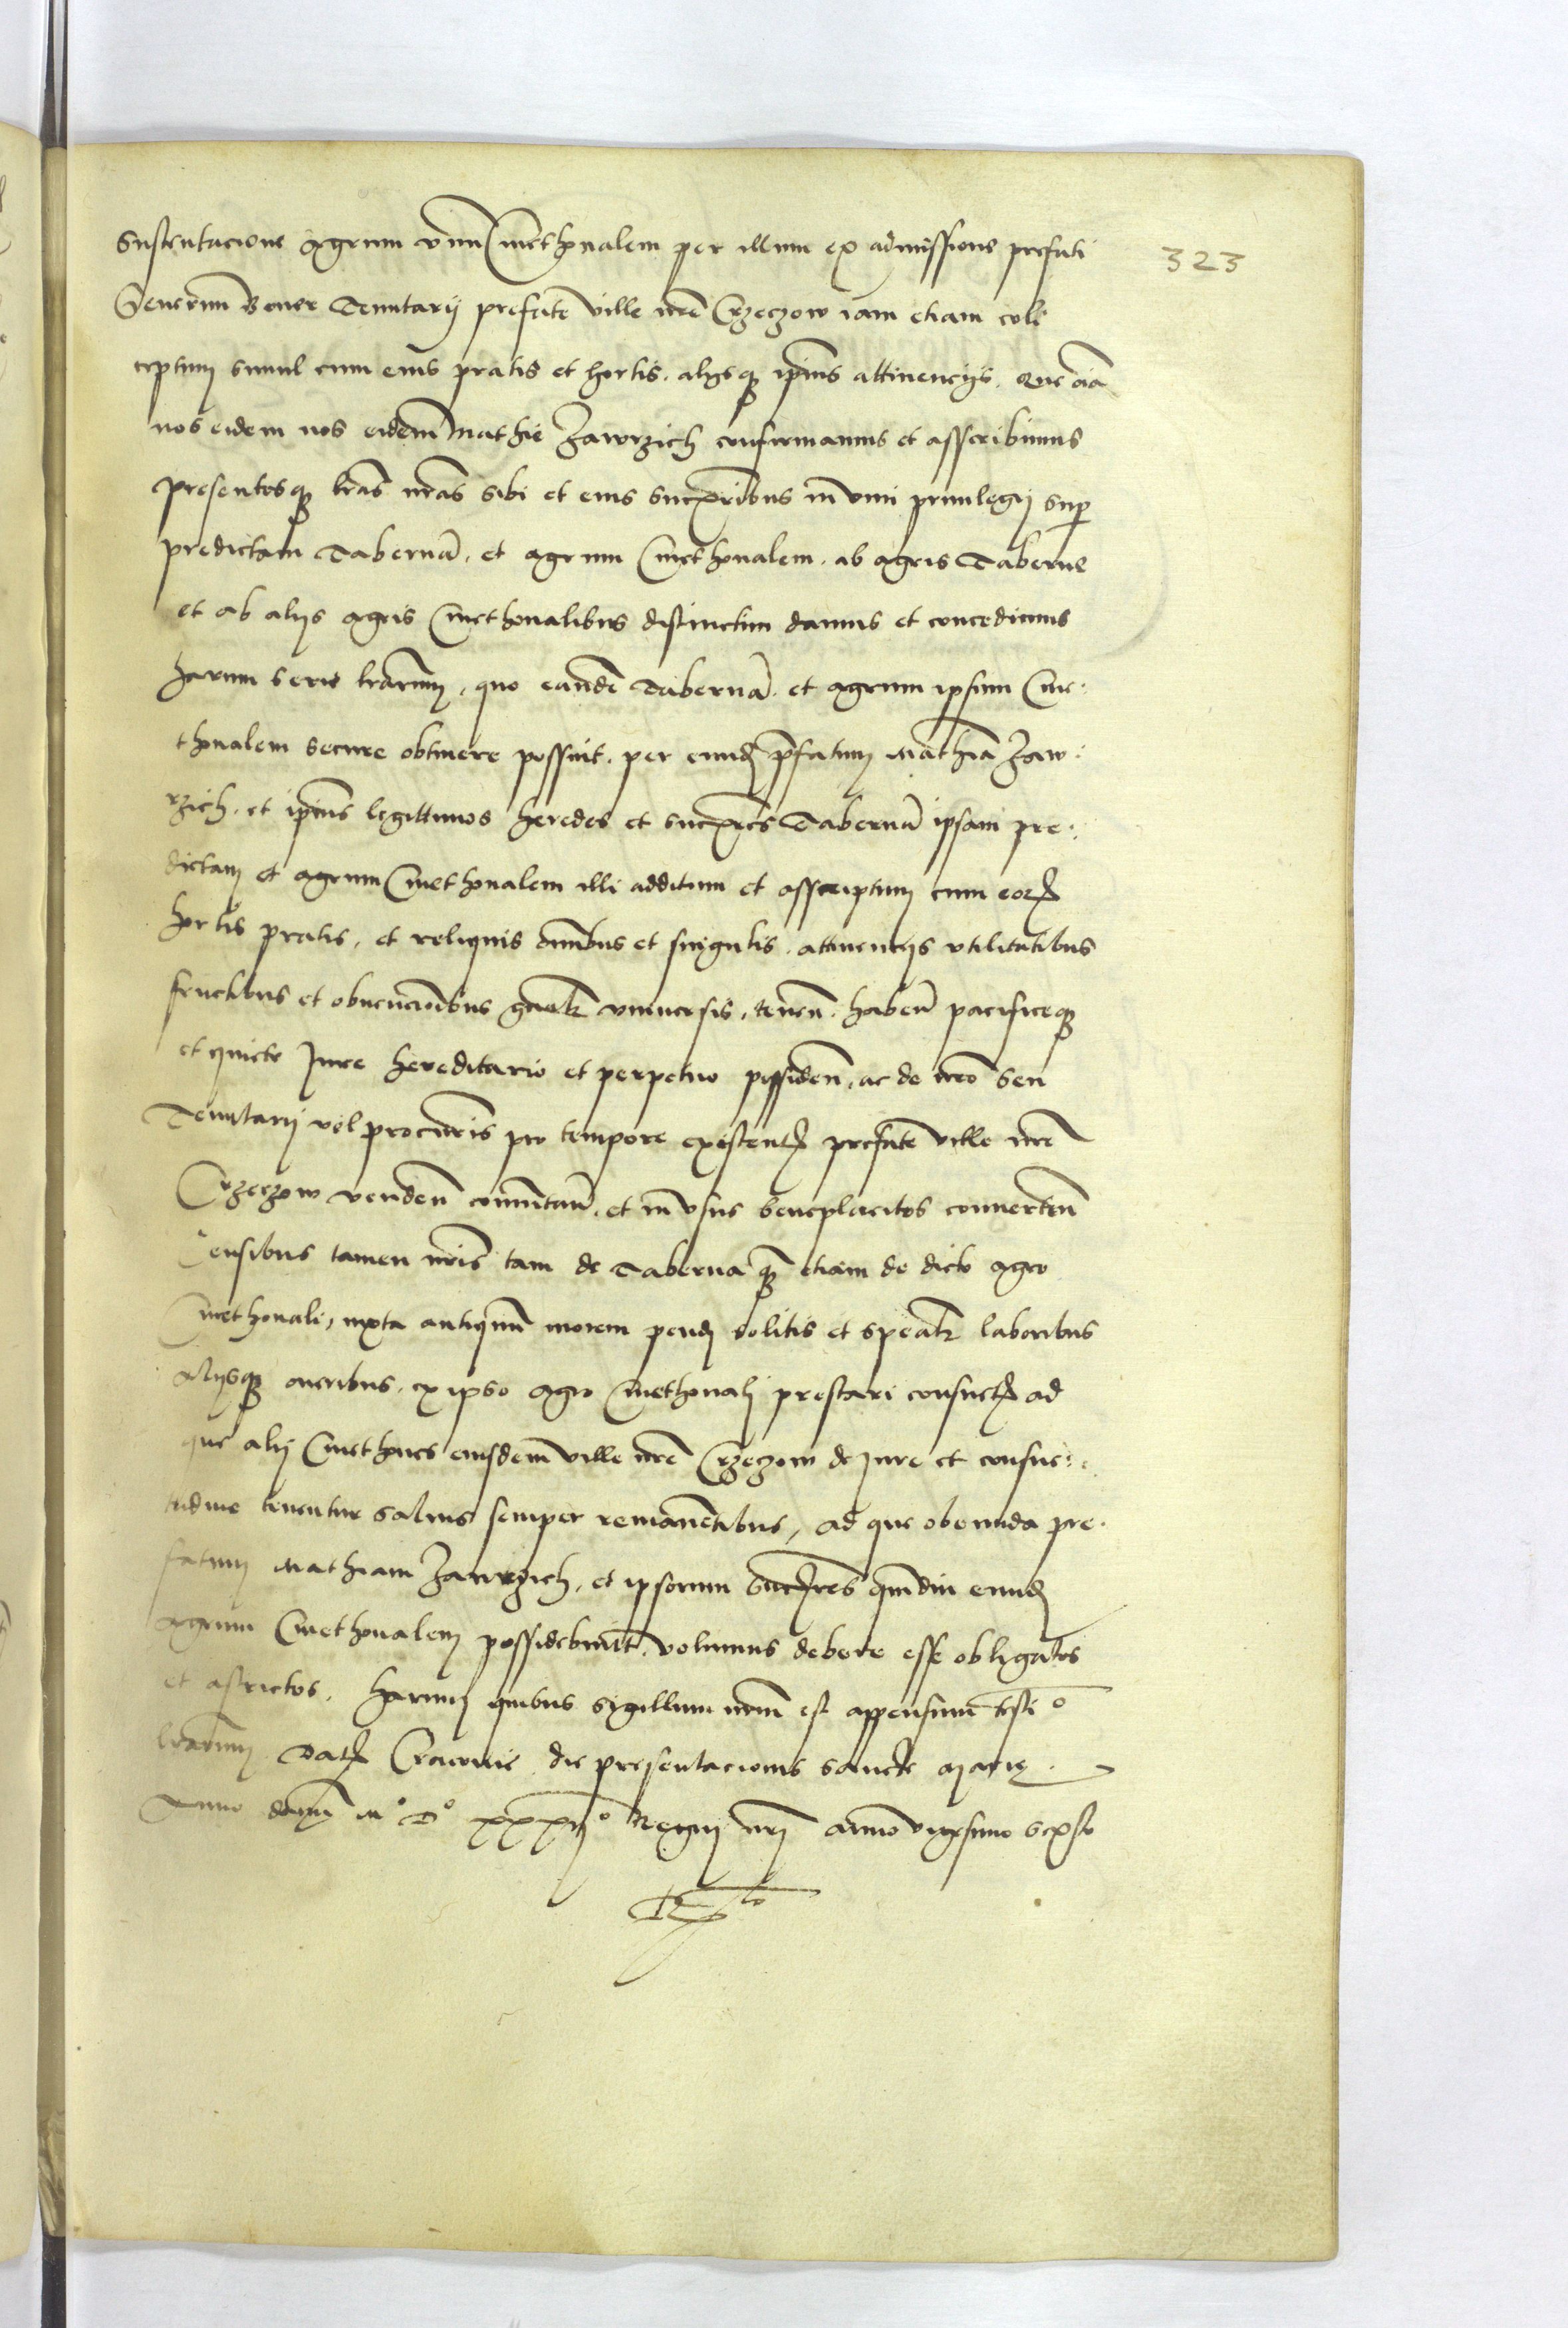 Sustentacione Agrum unu Cmethonalem per illum ex admissione prefati
Severini Boner Tenutarij prefate ville nre Crzeczow iam etiam coli
ceptum simul cum eius pratis et hortis, alijsque ipius attinencijs, Que oia
nos eidem nos eidem Mathie Jawrzich confirmamus et asscribimus
presentesque lras nras sibi et eius successoribus in vim privilegij sup
predictam Taberna, et agrum Cmethonalem, ab agris Taberne
et ab alijs agris Cmethonalibus distinctum damus et concedimus
harum serie lrarum, quo eande Taberna, et agrum ipsum Cme-
thonalem secure obtinere possint, per eund pfatum Mathia Jaw-
rzich, et ipius legittimos heredes et successores Taberna ipsam pre-
dictam et agrum Cmethonalem illi additum et asscriptum cum eor
hortis pratis, et reliquis omibus et singulis, attinencijs utilitatibus
fructibus et obvencionibus universis, tenen, haben pacificeque
et quiete Jure hereditario et perpetuo possiden, ac de nro seu
Tenutarij vel procuris pro tempore existent prefate ville nre
Crzeczow venden comutan, et in usus beneplacitos converten
Censibus tamen nris tam de Taberna quam etiam de dicto agro
Cmethonali, iuxta antiquum morem pendi solitis et laboribus
alijsque oneribus, ex ipso agro Cmethonali prestari consuet ad
que alij Cmethones eiusdem ville nre Crzeczow de Jure et consue-
tudine tenentur salvis semper remanentibus, ad que obeunda pre-
fatum Mathiam Jawrzich, et ipsorum successores quidiu eund
agrum Cmethonalem possidebunt, volumus debere esse obligatos
et astrictos, Harum quibus Sigillum nrum est appensum testio
lrarum, Dat Cracovie die presentacionis Sancte Marie.
Anno domini M° D° xxxij° Regni nri anno vigesimo sexto